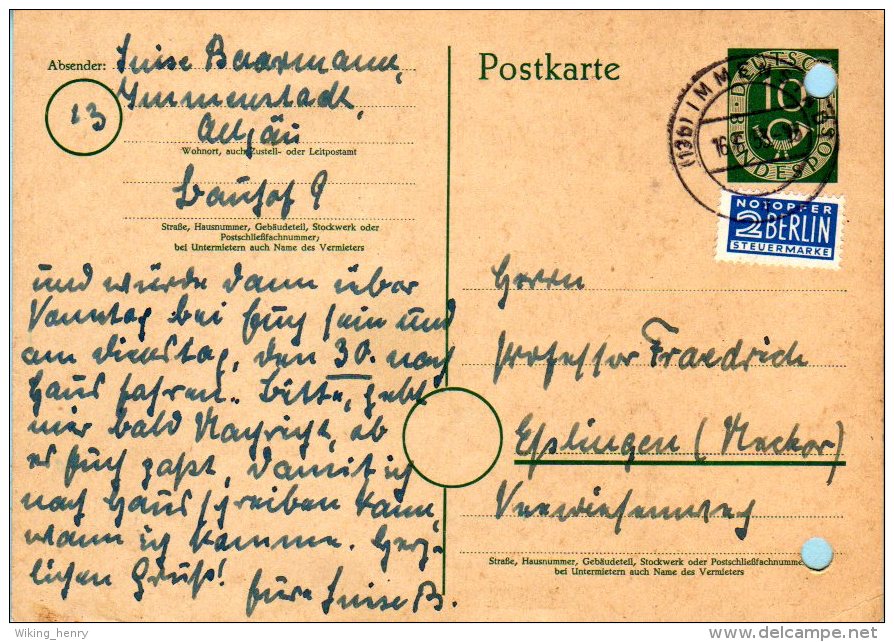 Absender: Luise Baarmann,
13
Immenstadt,
Allgäu
Wohnort, auch Zustell- oder Leitpostamt
Bauhof 9
Straße, Hausnummer, Gebäudeteil, Stockwerk oder
Postschließfachnummer;
bei Untermietern auch Name des Vermieters
und würde dann über
Sonntag bei Euch sein und
am Dienstag, den 30. nach
Haus fahren. Bitte, gebt
mir bald Nachricht, ob
es Euch paßt, damit ich
nach Haus schreiben kann,
wann ich komme. Herz-
lichen Gruß!
Eure Luise B.
Postkarte
DEUTSCHE
BUNDESPOST
10
(13b) IMMENSTADT
NOTOPFER
2 BERLIN
STEUERMARKE
Herrn
Professor Fraedrich
Esslingen (Neckar)
Straße, Hausnummer, Gebäudeteil, Stockwerk oder Postschließfachnummer;
bei Untermietern auch Name des Vermieters
Wiking_henry
www.delcampe.net